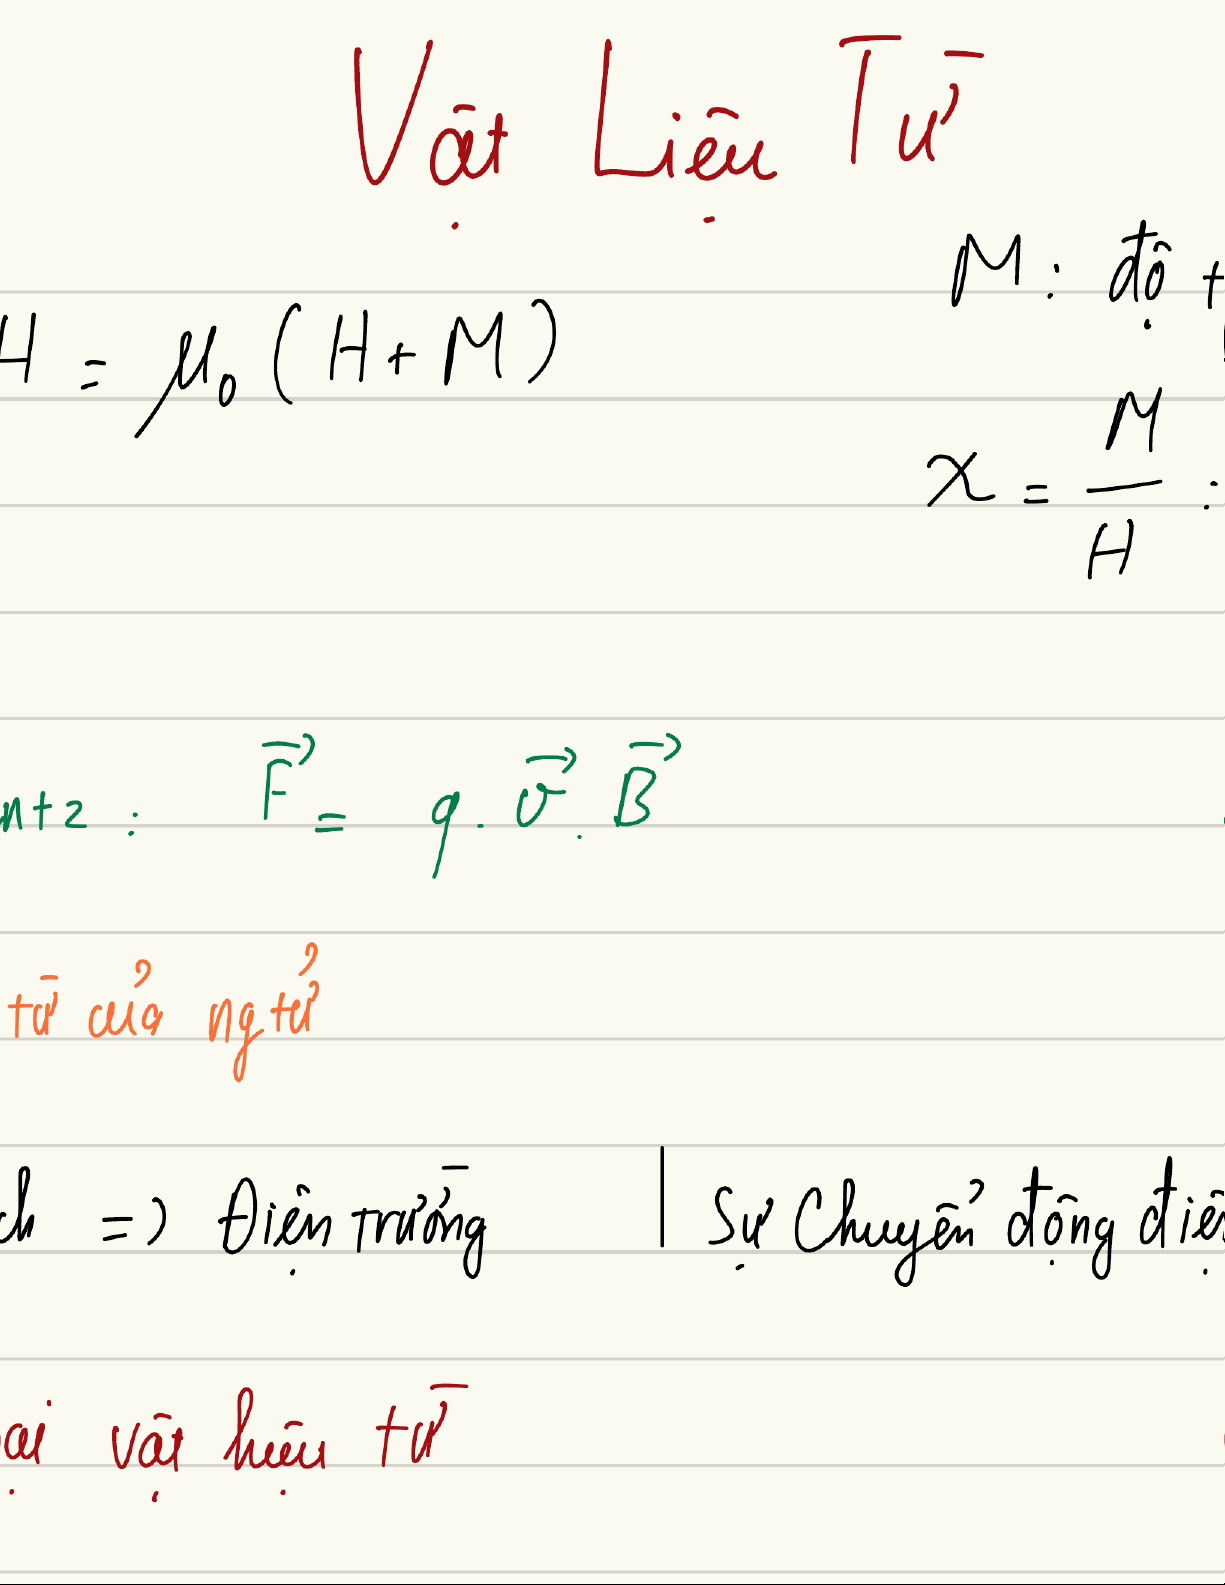 Vật Liệu Từ
M: độ
H = μ₀ (H + M)
χ = M/H :
F⃗ = q . v⃗ . B⃗
từ của ng tử
=> Điện trường | Sự chuyển động
vật liệu từ